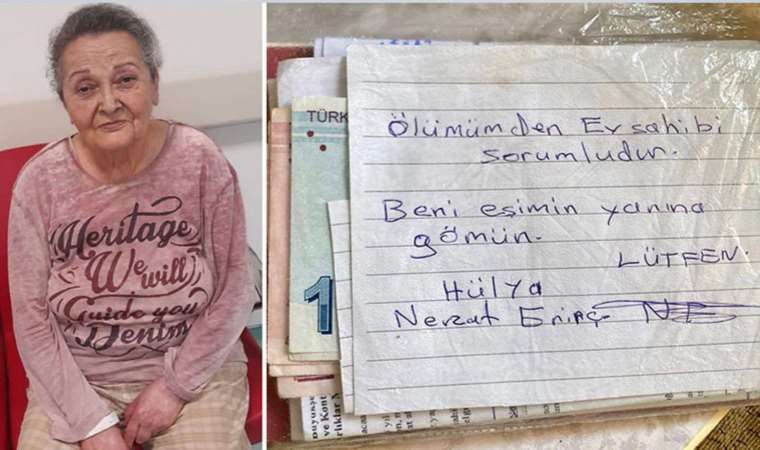 Heritage
We will
Guide you
Denim
TÜRK
1
Ölümümden Ev sahibi
sorumludur.
Beni eşimin yanına
gömün.
LÜTFEN.
Hülya
Nevzat Erinç
NE
ve Kont